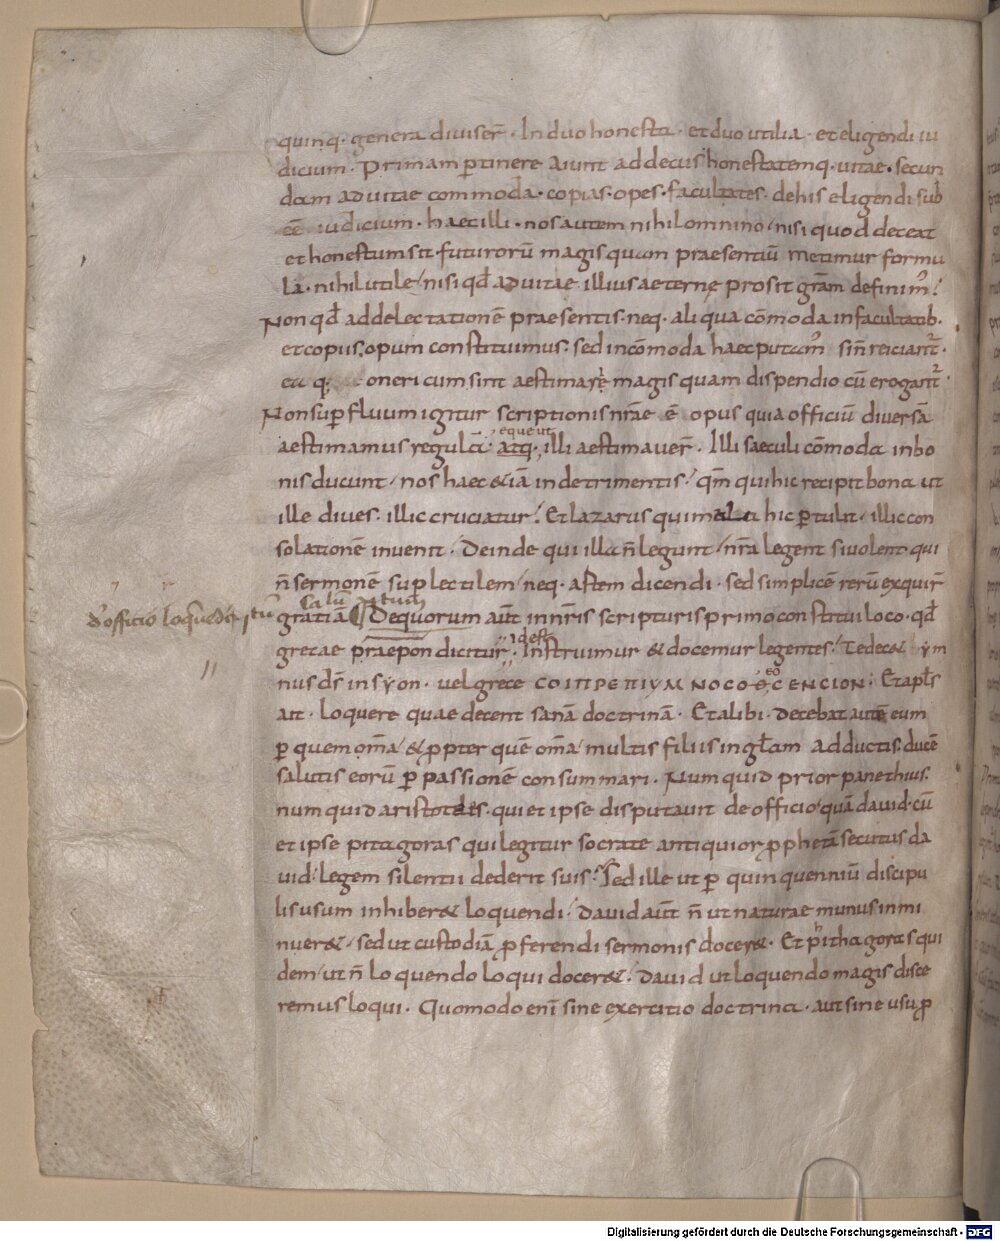 quinq· genera diuiser̄· In duo honesta· et duo utilia· et eligendi iu
dicium· Primam ꝑtinere aiunt ad decus honestatemq· uitae· secun
dam ad uitae commoda· copias· opes· facultates· de his eligendi sub
ēē iudicium· haec illi· nos autem nihil omnino/ nisi quod deceat
et honestum sit· futurorū magis quam praesentiū metimur formu
la· nihil utile/ nisi qđ ad uitae illius aeternę prosit gr̄am definim̄·
Non qđ ad delectationē praesentis· neq· aliqua cōmoda in facultatib·
et copiis opum constituimus· sed incōmoda haec putam̄ si n̄ reiciant̄·
ea q· oneri cum sint aestimarę magis quam dispendio cū erogant̄·
Non suꝑfluum igitur scriptionis nr̄ae ē opus quia officiū diuersa
eque ut
aestimamus regula· atq· illi aestimauer̄· Illi saeculi cōmoda in bo
nis ducunt/ nos haec &iā in detrimentis· qm̄ qui hic recipit bona ut
ille diues· illic cruciatur· Et lazarus qui mala hic ꝑtulit· illic con
solationē inuenit· Deinde qui illa n̄ legunt/ nr̄a legent si uolent qui
n̄ sermonē suplectilem/ neq· astem dicendi· sed simplicē rerū exquir̄
gratiā Dequorum aūt in nr̄is scripturis primo constitui loco· qđ
idest
grecae praepon dicitur· Instruimur & docemur legentes· Te dec& ym
nus ds̄ in syon· uel grece COIΠPEΠIYM NOCOΘ̄C ENCION· Et apl̄s
ait· loquere quae decent sanā doctrinā· Et alibi· decebat autē eum
ꝑ quem om̄a/ & ꝓpter quē om̄a/ multis filiis in gl̄am adductis· ducē
salutis eorū ꝑ passionē consummari· Num quid prior panethius·
num quid aristotelis· qui et ipse disputauit de officio quā dauid· cū
et ipse pitagoras qui legitur socrate antiquior ꝓphetā secutus da
uid· legem silentii dederit suis· Sed ille ut ꝑ quinquenniū discipu
lis usum inhiber& loquendi/ dauid aūt n̄ ut naturae munus inmi
nuer&· sed ut custodiā ꝓferendi sermonis docer&· Et pithagoras qui
dem/ ut n̄ loquendo loqui docer&· dauid ut loquendo magis disce
remus loqui· Quomodo enī sine exercitio doctrina· aut sine usu ꝓ
Digitalisierung gefördert durch die Deutsche Forschungsgemeinschaft - DFG